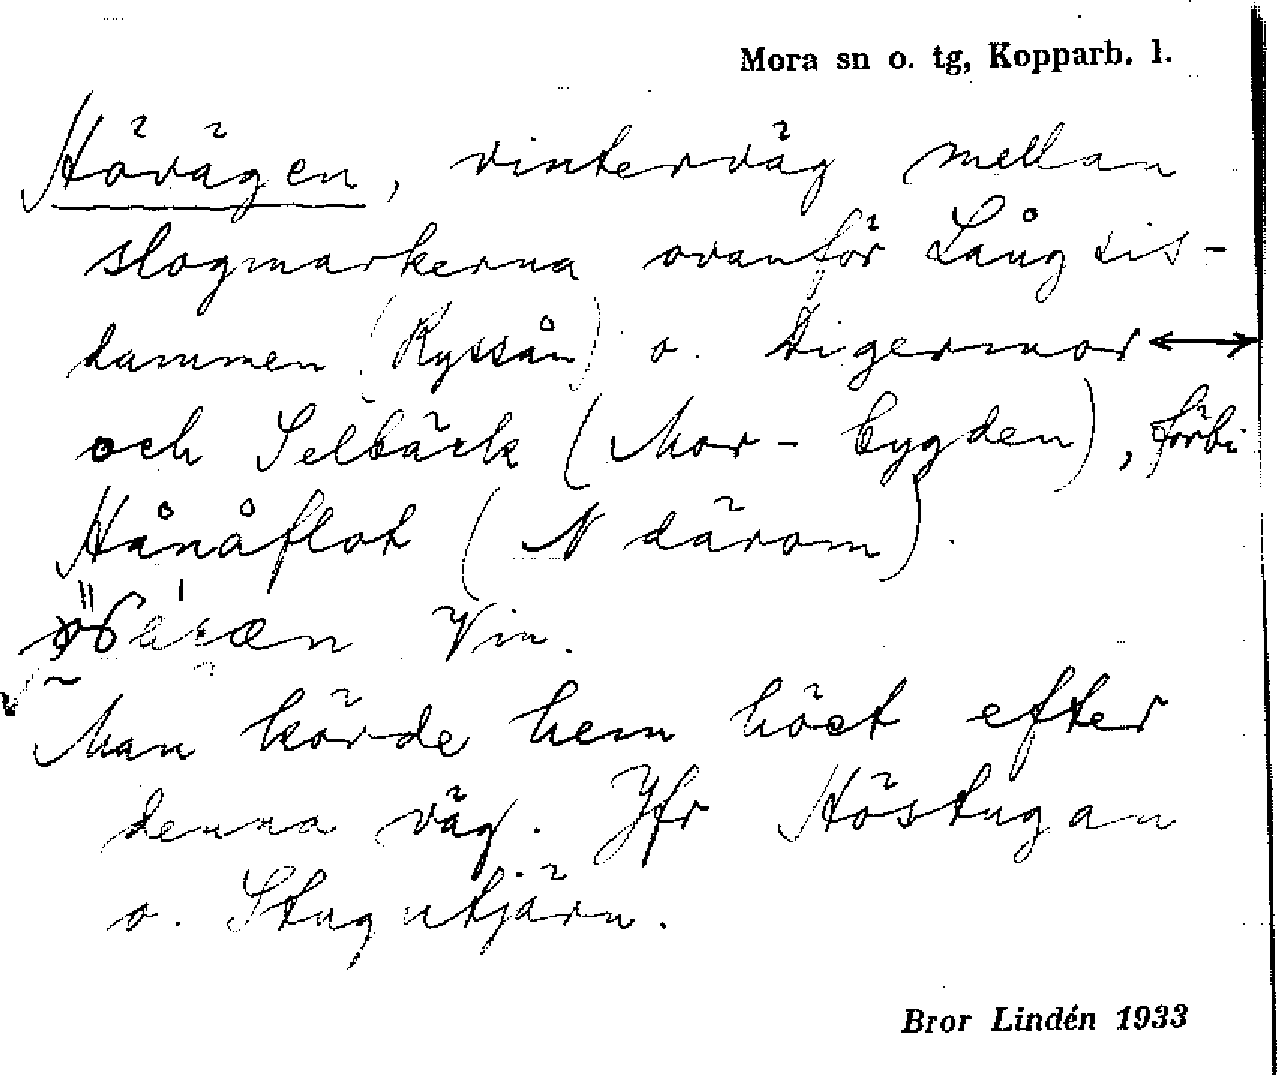 Mora sn o. tg, Kopparb. l.
Hövägen, vinterväg mellan
slogmarkerna ovanför Lång sis-
dammen (Ryssån) o. Digermor
och Selbäck (Mor-bygden), förbi
Hånåflot (N därom).
Vin.
Man körde hem höet efter
denna väg. Jfr Höstugan
o. Stugutjärn.
Bror Lindén 1933